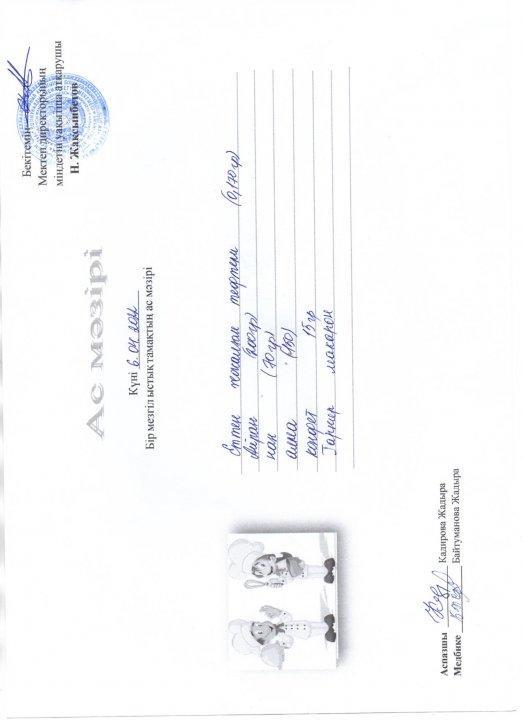 Бекітемін
Мектеп директорының
міндетін уақытша атқарушы
Н. Жақсынбетов
Ас мәзірі
Күні 6.04
Бір мезгіл ыстық тамақтың ас мәзірі
Еттен жасалған тефтели (0,170гр)
Айран (200гр)
нан (70гр)
алма (150)
конфет 15гр
Гарнир макарон
Аспазшы Кадирова Жадыра
Медбике Байтуманова Жадыра